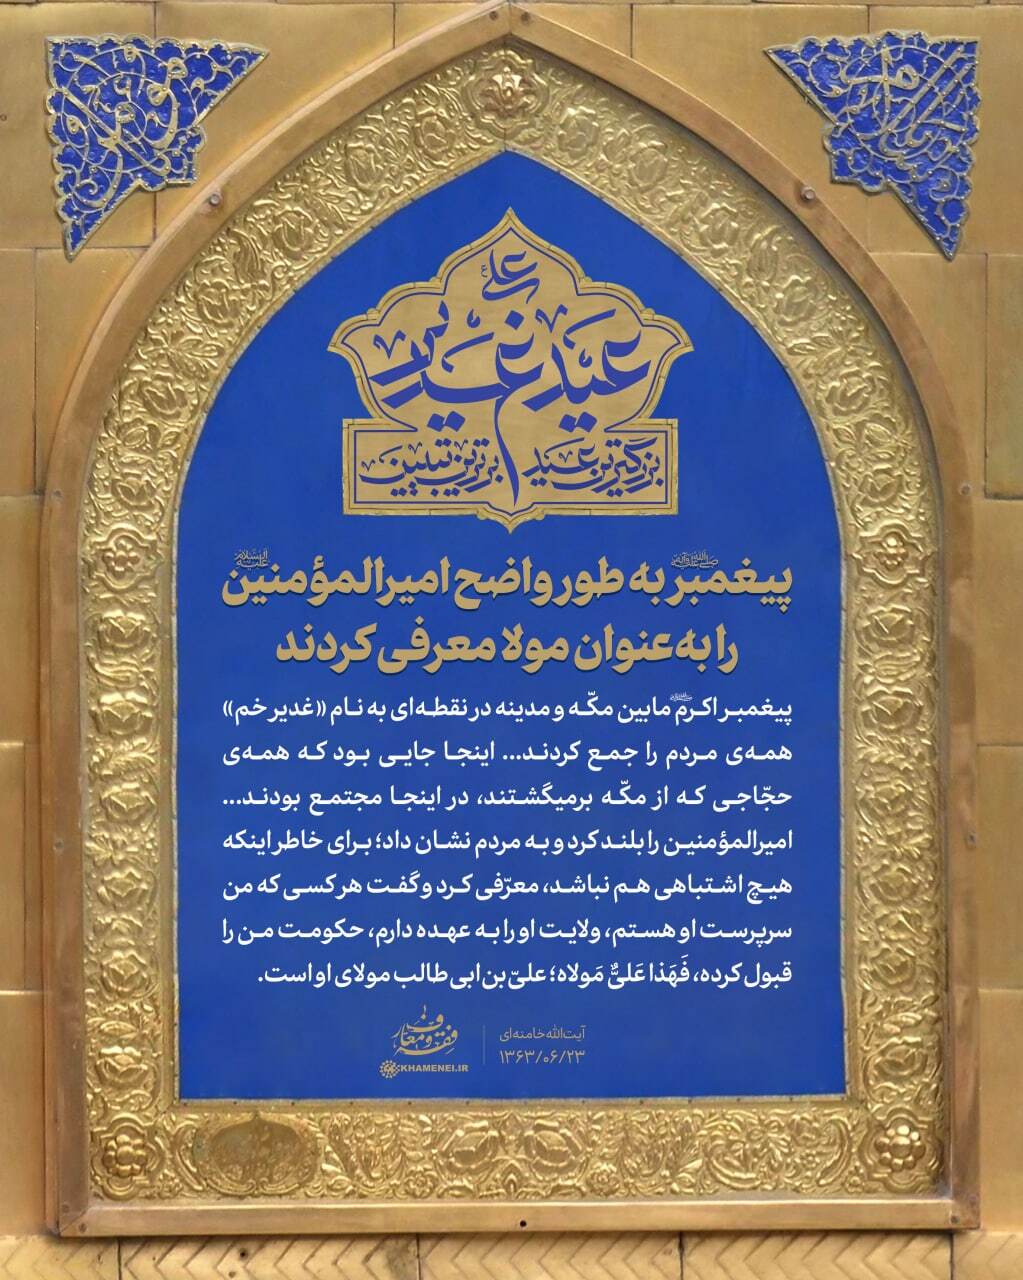 علی ع
عید غدیر
بزرگترین عید برترین تبیین
پیغمبر ﷺ به طور واضح امیرالمؤمنین علیه‌السلام
را به عنوان مولا معرفی کردند
پیغمبر اکرم ﷺ مابین مکّه و مدینه در نقطه‌ای به نام «غدیر خم»
همه‌ی مردم را جمع کردند... اینجا جایی بود که همه‌ی
حجّاجی که از مکّه برمیگشتند، در اینجا مجتمع بودند...
امیرالمؤمنین را بلند کرد و به مردم نشان داد؛ برای خاطر اینکه
هیچ اشتباهی هم نباشد، معرّفی کرد و گفت هر کسی که من
سرپرست او هستم، ولایت او را به عهده دارم، حکومت من را
قبول کرده، فَهَذا عَلیٌّ مَولاه؛ علیّ بن ابی طالب مولای او است.
آیت‌الله خامنه‌ای
۱۳۶۳/۰۶/۲۳
فقه و معارف
KHAMENEI.IR